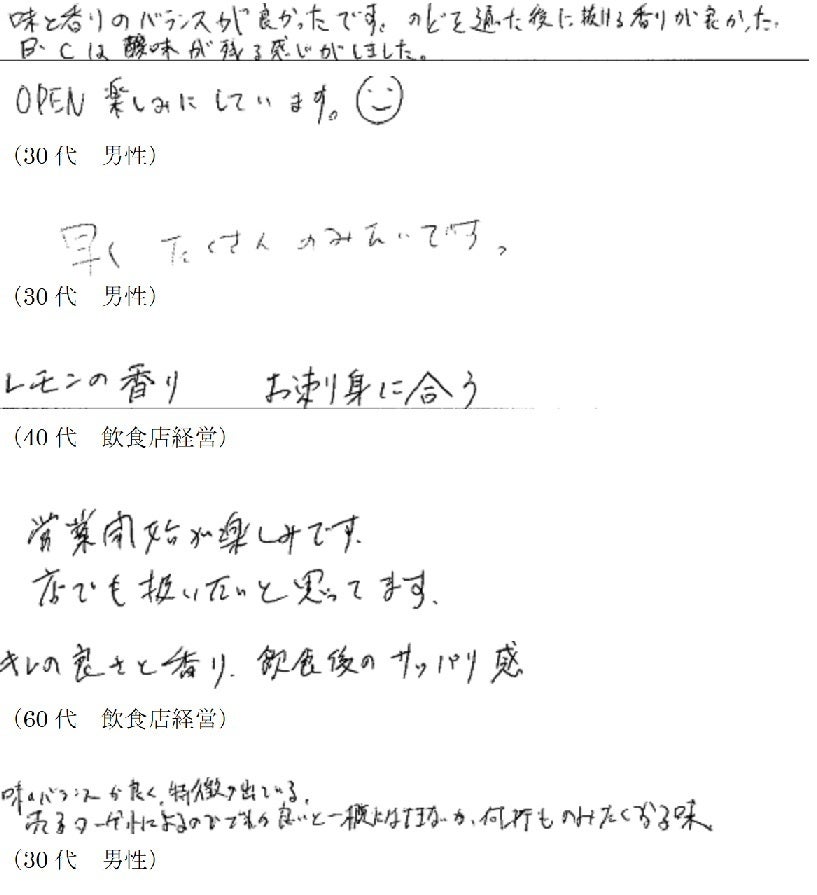 味と香りのバランスが良かったです。のどを通った後に抜ける香りが良かった。
B・Cは酸味が残る感じがしました。
OPEN 楽しみにしています。
(30代 男性)
早く たくさん のみたいです。
(30代 男性)
レモンの香り お刺身に合う
(40代 飲食店経営)
営業開始が楽しみです。
店でも扱いたいと思ってます。
キレの良さと香り、飲食後のサッパリ感
(60代 飲食店経営)
味のバランスが良く、特徴が出ている。
売るターゲットによるのでどれが良いと一概には言えないが、何杯ものみたくなる味
(30代 男性)